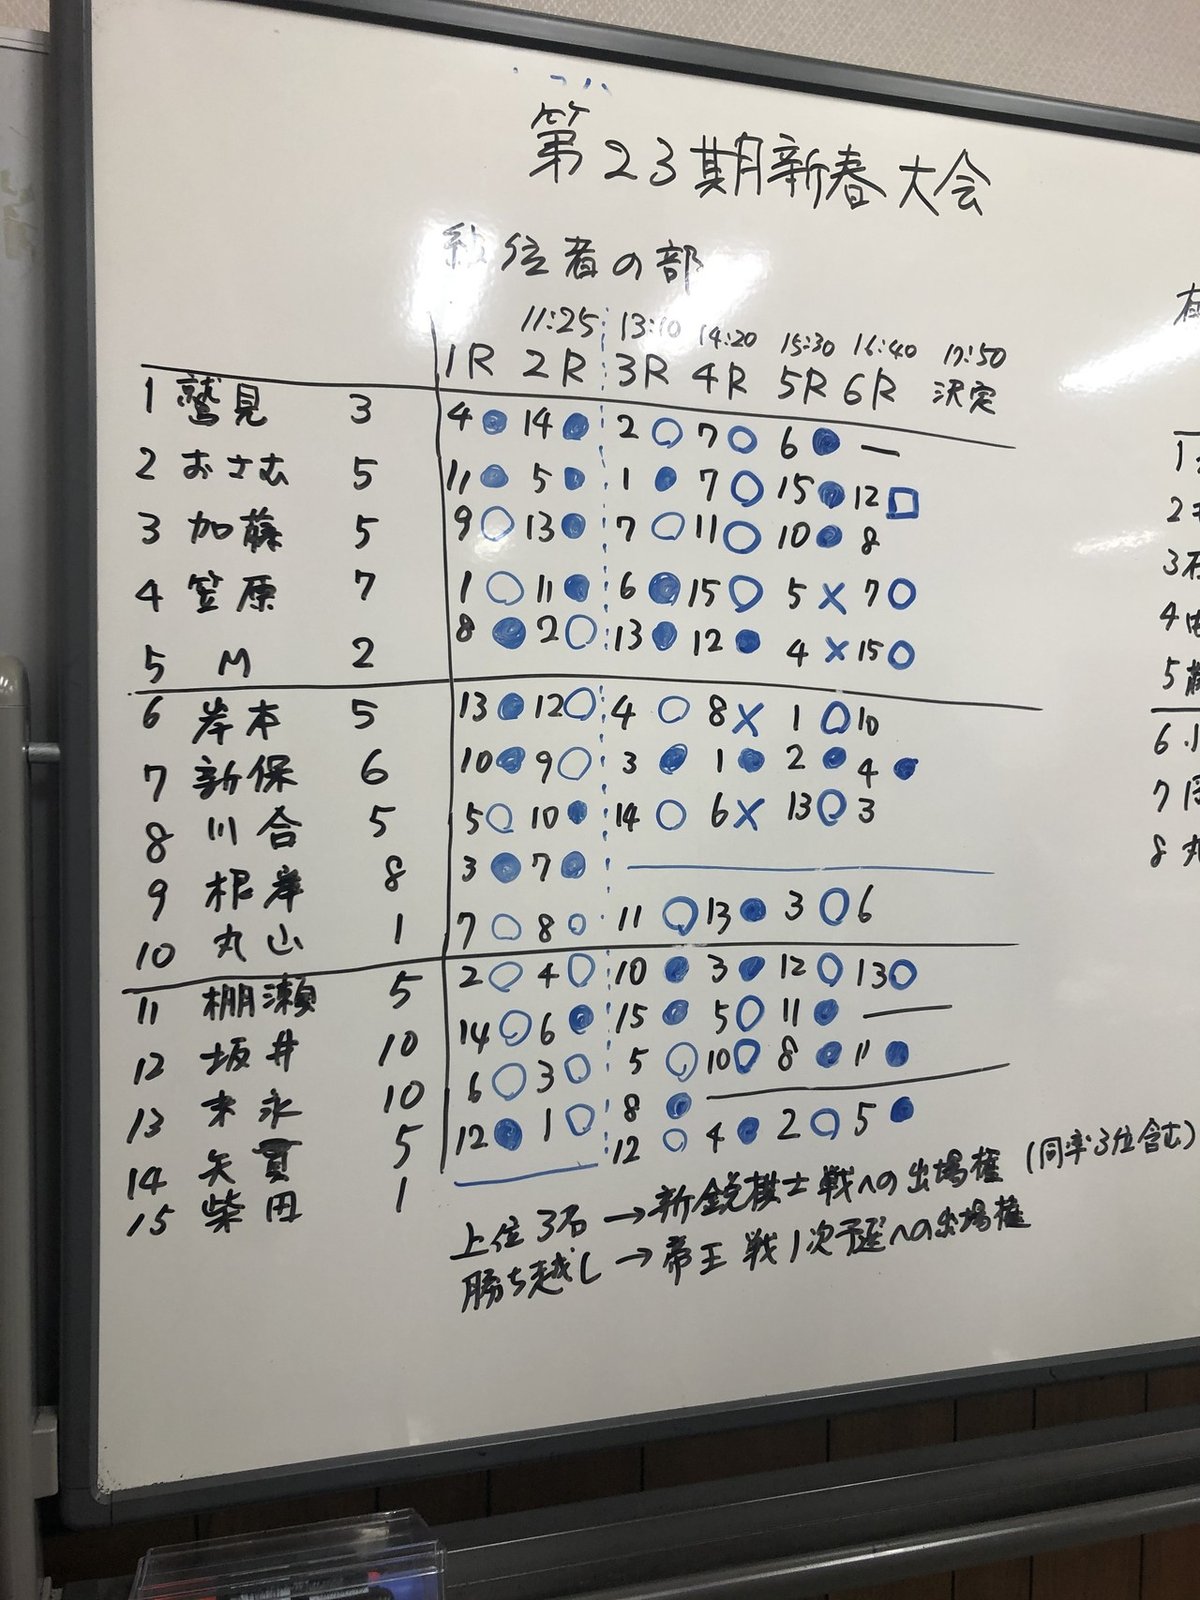 第23期新春大会
級位者の部
11:25 13:10 14:20 15:30 16:40 17:50
1R 2R 3R 4R 5R 6R 決定
1 鷲見 3 4 ● 14 ● 2 ○ 7 ○ 6 ● —
2 おさむ 5 11 ● 5 ● 1 ● 7 ○ 15 ● 12 □
3 加藤 5 9 ○ 13 ● 7 ○ 11 ○ 10 ● 8
4 笠原 7 1 ○ 11 ● 6 ● 15 ○ 5 × 7 ○
5 M 2 8 ● 2 ○ 13 ● 12 ● 4 × 15 ○
6 岸本 5 13 ● 12 ○ 4 ○ 8 × 1 ○ 10
7 新保 6 10 ● 9 ○ 3 ● 1 ● 2 ● 4 ●
8 川合 5 5 ○ 10 ● 14 ○ 6 × 13 ○ 3
9 根岸 8 3 ● 7 ●
10 丸山 1 7 ○ 8 ○ 11 ○ 13 ● 3 ○ 6
11 棚瀬 5 2 ○ 4 ○ 10 ● 3 ● 12 ○ 13 ○
12 坂井 10 14 ○ 6 ● 15 ● 5 ○ 11 ● —
13 末永 10 6 ○ 3 ○ 5 ○ 10 ○ 8 ● 11 ●
14 矢貫 5 12 ● 1 ○ 8 ●
15 柴田 1 12 ○ 4 ● 2 ○ 5 ●
上位3名→新鋭棋士戦への出場権(同率3位含む)
勝ち越し→帝王戦1次予選への出場権
1
2
3
4
5
6 小
7
8 丸